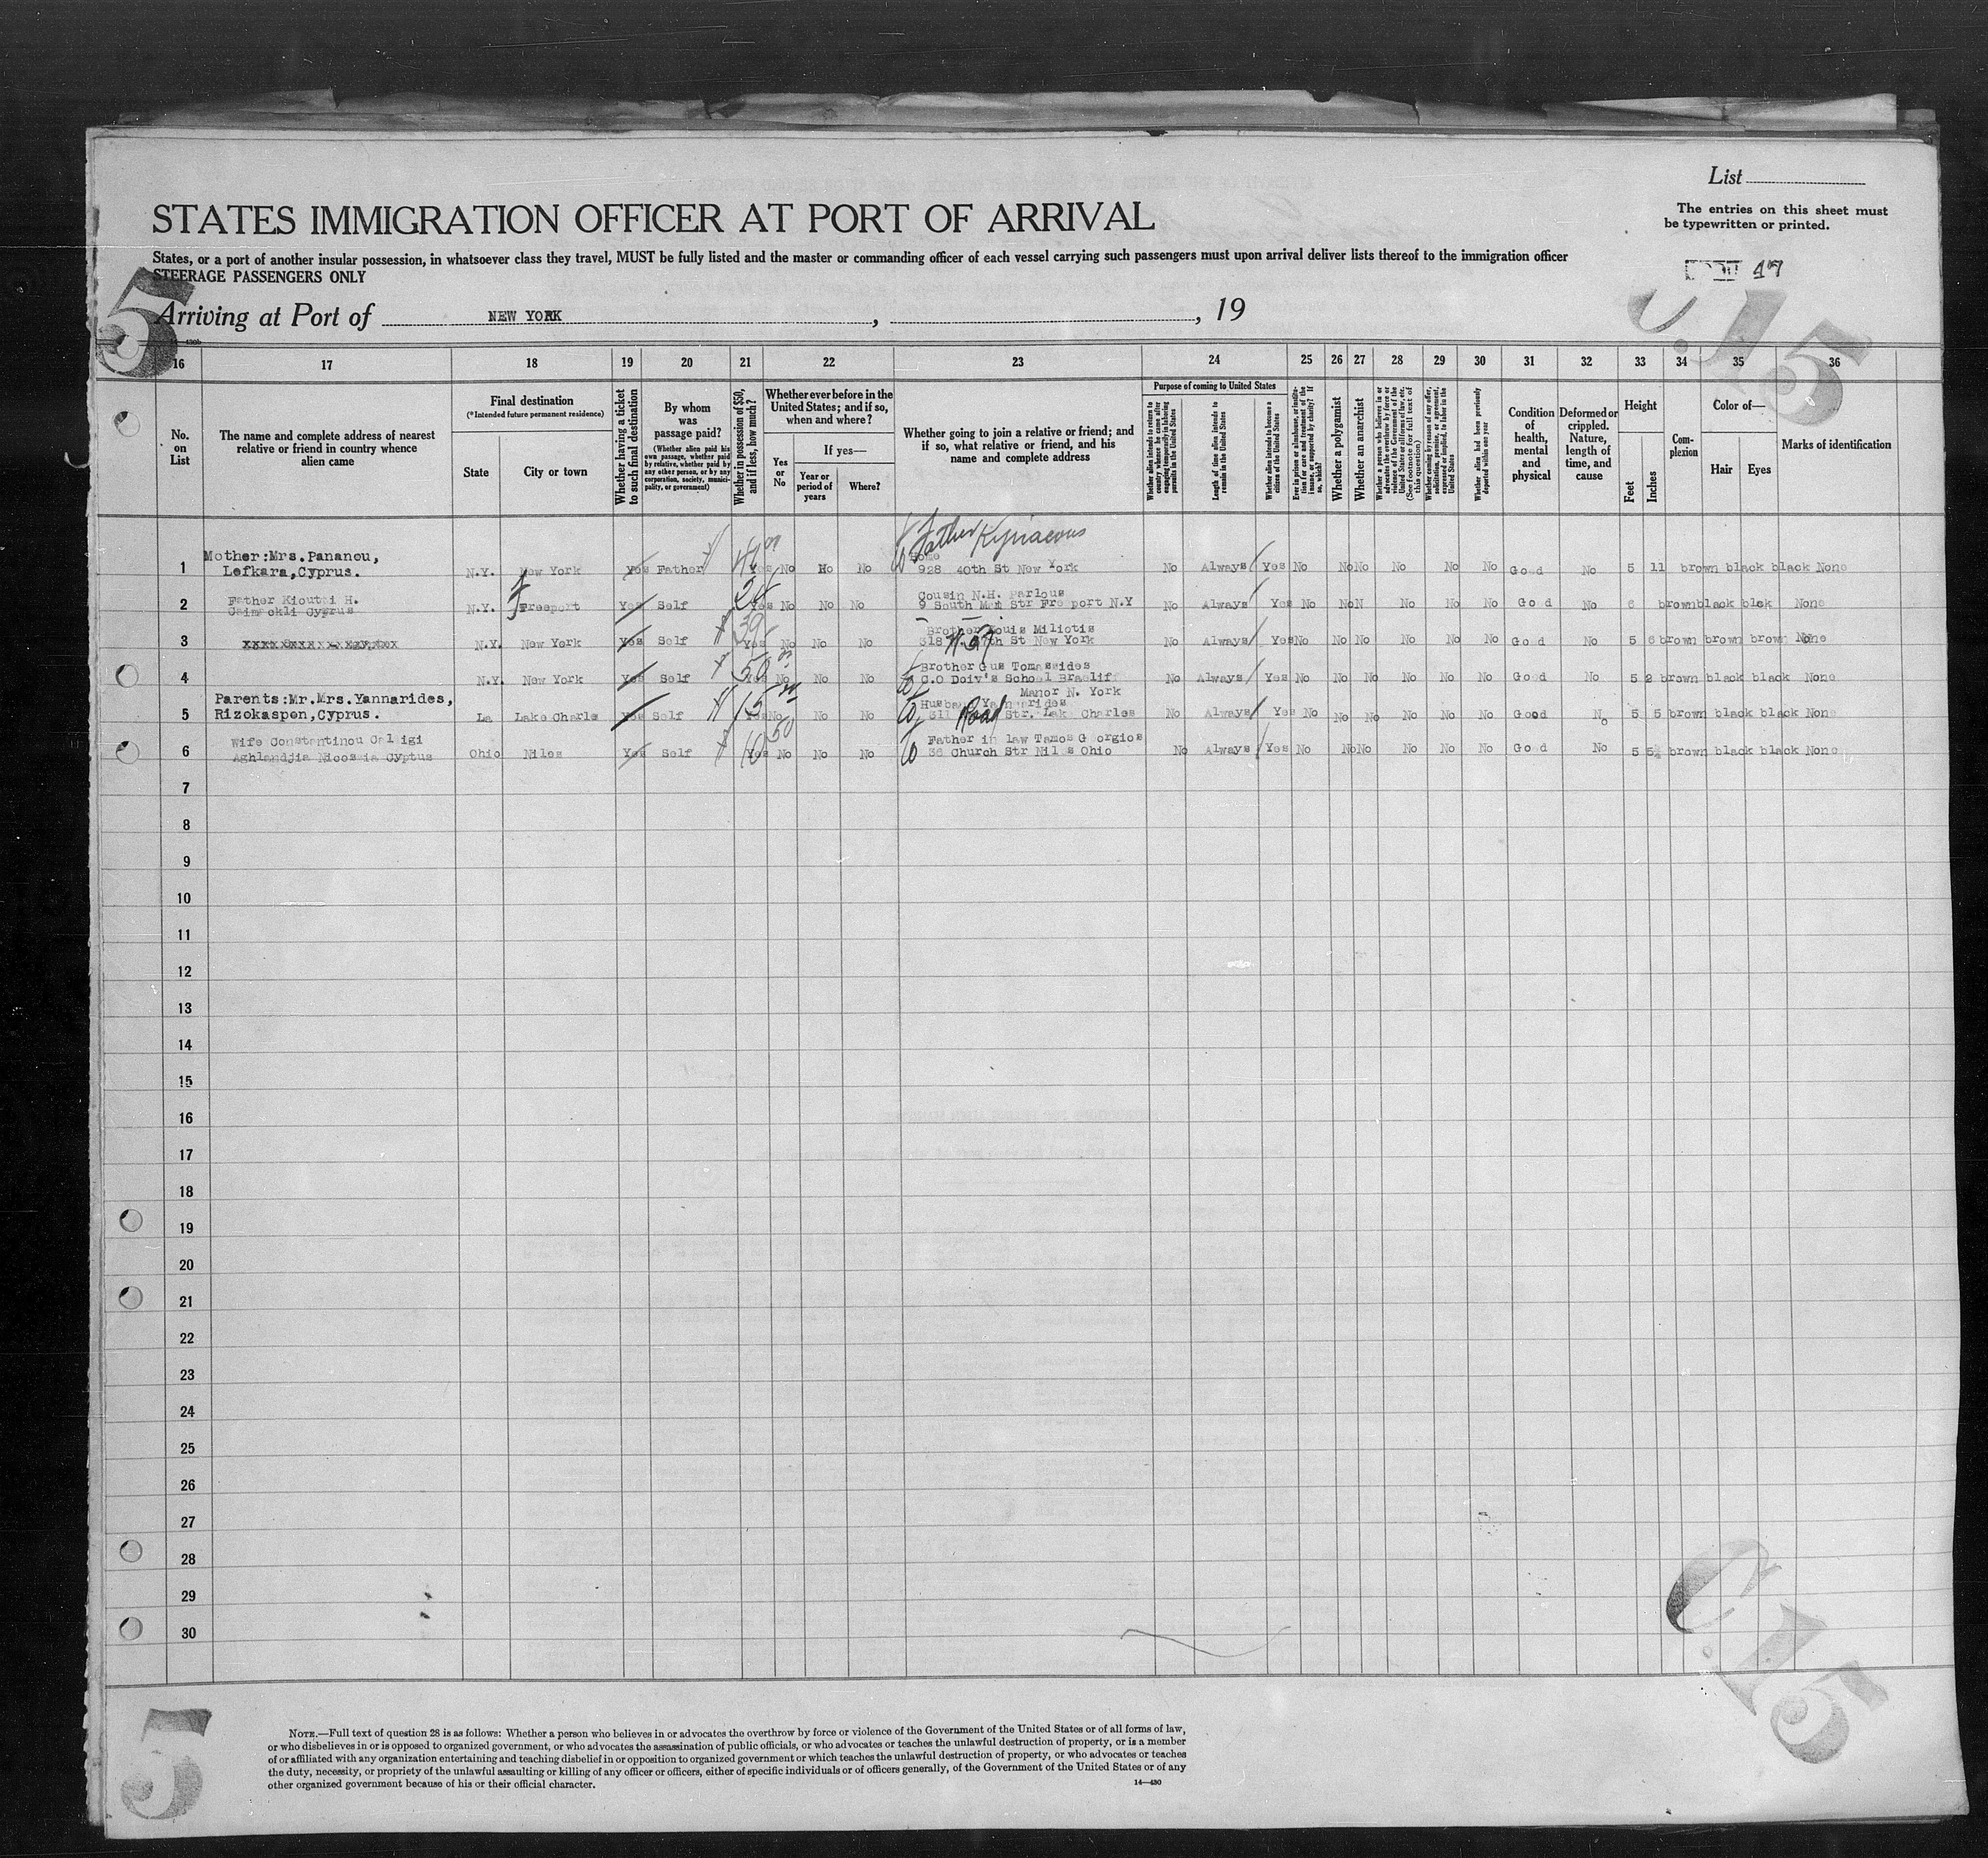 List
The entries on this sheet must
be typewritten or printed.
STATES IMMIGRATION OFFICER AT PORT OF ARRIVAL
States, or a port of another insular possession, in whatsoever class they travel, MUST be fully listed and the master or commanding officer of each vessel carrying such passengers must upon arrival deliver lists thereof to the immigration officer
STEERAGE PASSENGERS ONLY
47
5
C.15
Arriving at Port of NEW YORK , , 19
16 17 18 19 20 21 22 23 24 25 26 27 28 29 30 31 32 33 34 35 36
No. on List
The name and complete address of nearest relative or friend in country whence alien came
Final destination
(*Intended future permanent residence)
State
City or town
Whether having a ticket to such final destination
By whom was passage paid?
(Whether alien paid his own passage, whether paid by relative, whether paid by any other person, or by any corporation, society, municipality, or government)
Whether in possession of $50, and if less, how much?
Whether ever before in the United States; and if so, when and where?
Yes or No
If yes—
Year or period of years
Where?
Whether going to join a relative or friend; and if so, what relative or friend, and his name and complete address
Purpose of coming to United States
Whether alien intends to return to country whence he came after engaging temporarily in laboring pursuits in the United States
Length of time alien intends to remain in the United States
Whether alien intends to become a citizen of the United States
Ever in prison or almshouse, or institution for care and treatment of the insane, or supported by charity? If so, which?
Whether a polygamist
Whether an anarchist
Whether a person who believes in or advocates the overthrow by force or violence of the Government of the United States or all forms of law, etc. (See footnote for full text of this question)
Whether coming by reason of any offer, solicitation, promise, or agreement, expressed or implied, to labor in the United States
Whether alien had been previously deported within one year
Condition of health, mental and physical
Deformed or crippled. Nature, length of time, and cause
Height
Feet
Inches
Complexion
Color of—
Hair
Eyes
Marks of identification
Father Kyriacous
1 Mother:Mrs.Pananou, Lefkara,Cyprus. N.Y. New York Yes Father Yes No No No 928 40th St New York No Always Yes No No No No No No Good No 5 11 brown black black None
2 Father Kioutsi H. Caimakli Cyprus N.Y. Freeport Yes Self Yes No No No Cousin N.H. Parlous 9 South Str Freeport N.Y No Always Yes No No N No No No Good No brown black None
3 N.Y. New York Yes Self Yes No No No Brother Louis Miliotis 318 W. 57 St New York No Always Yes No No No No No No Good No 5 6 brown brown brown None
4 N.Y. New York Yes Self 50 Yes No No No Brother Gus C.O School Manor N. York No Always Yes No No No No No No Good No 5 2 brown black black None
5 Parents:Mr.Mrs.Yannarides, Rizokaspen,Cyprus. La Lake Charls Yes Self 15 Yes No No No Husband Yannarides 311 Road Str. Lake Charles No Always Yes No No No No No No Good No 5 5 brown black black None
6 Wife Constantinou Nicossia Cyptus Ohio Niles Yes Self Yes No No No Father in law Tamos Georgios 36 Church Str Niles Ohio No Always Yes No No No No No No Good No 5 brown black black None
7
8
9
10
11
12
13
14
15
16
17
18
19
20
21
22
23
24
25
26
27
28
29
30
C.15
5
NOTE.—Full text of question 28 is as follows: Whether a person who believes in or advocates the overthrow by force or violence of the Government of the United States or of all forms of law,
or who disbelieves in or is opposed to organized government, or who advocates the assassination of public officials, or who advocates or teaches the unlawful destruction of property, or is a member
of or affiliated with any organization entertaining and teaching disbelief in or opposition to organized government or which teaches the unlawful destruction of property, or who advocates or teaches
the duty, necessity, or propriety of the unlawful assaulting or killing of any officer or officers, either of specific individuals or of officers generally, of the Government of the United States or of any
other organized government because of his or their official character.
14—430